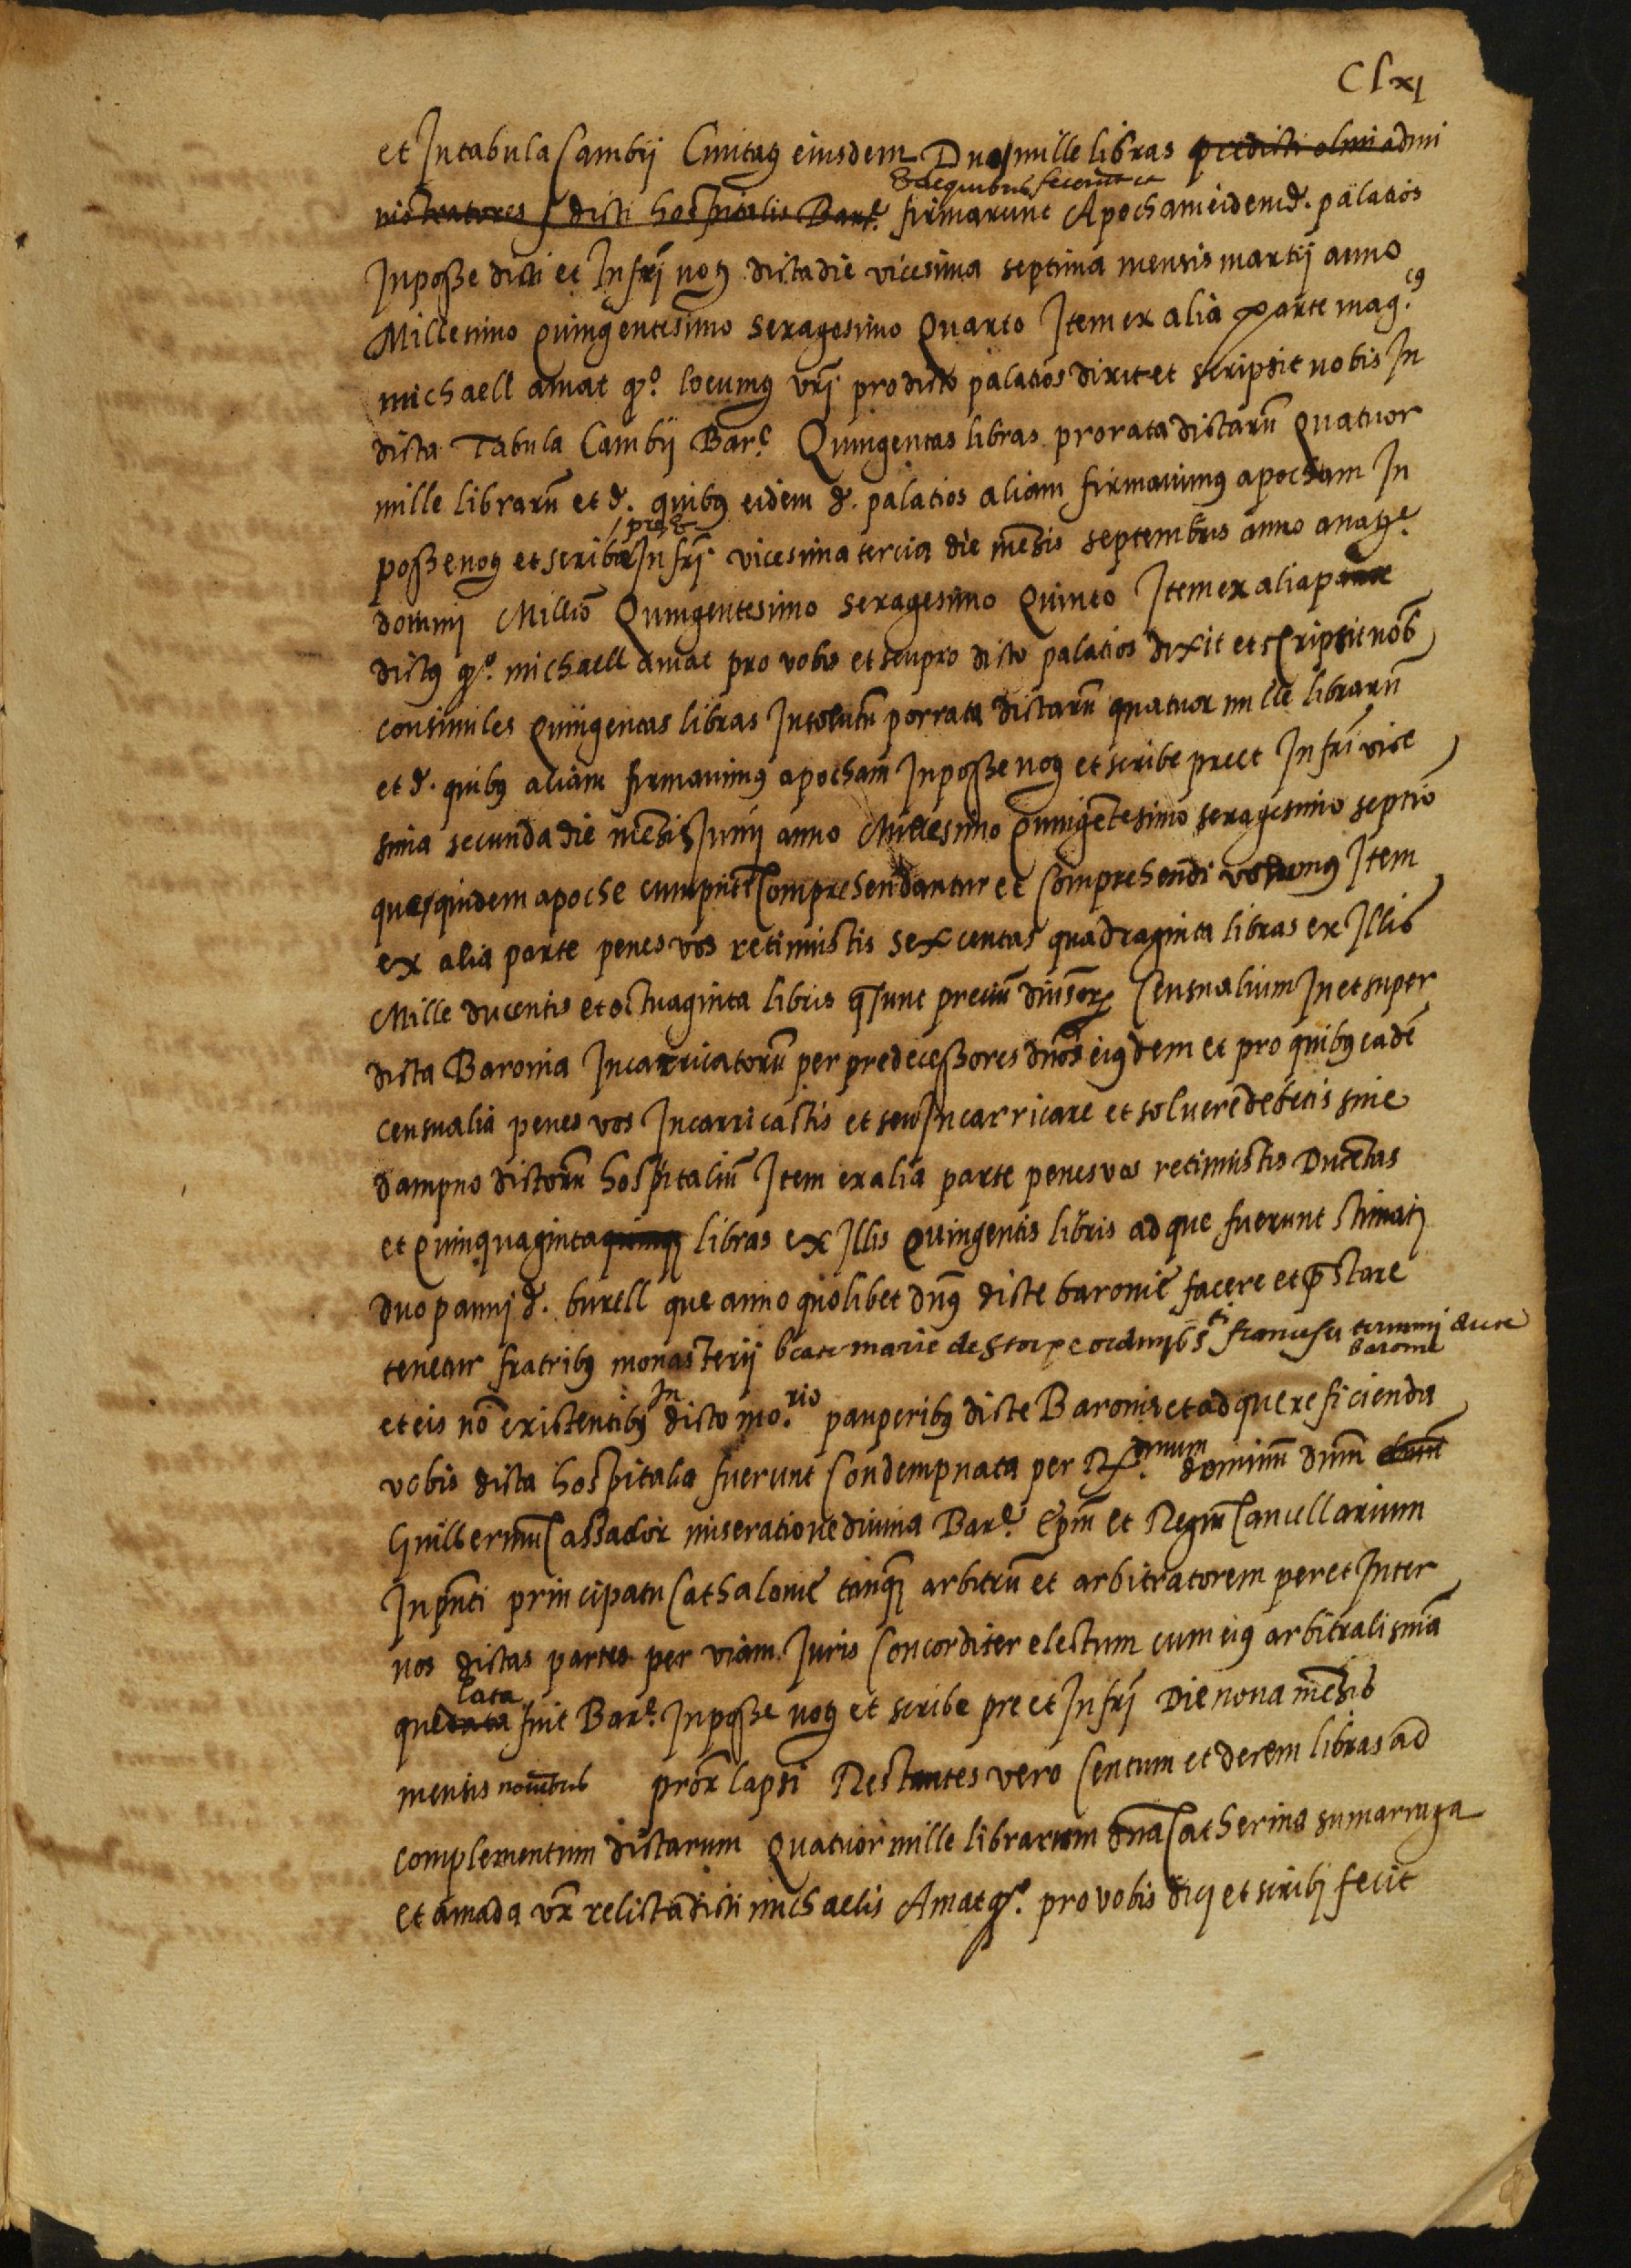 Clxj
et In tabula Cambij Civitatis eiusdem Duas mille libras predicti olim admi
& de quibus fecerunt et
nistratores dicti hospitalis Barne. firmarunt Apocham eidem d. palatios
In posse dicti et Infri. noty. dicta die vicesima septima mensis martij anno
Millesimo Quingentesimo sexagesimo Quarto Item ex alia parte mag.cs
michaell amat qo. locumts. vri. pro dicto palatios dixit et scripsit nobis In
dicta Tabula Cambij Barc. Quingentas libras pro rata dictarũ Quatuor
mille librarũ et d. quibus eidem d. palatios aliam firmavimus apocham In
pre &
posse noty. et scribe Infri. vicesima tercia die mẽsis septembris anno a naty.e
domini Millĩo Quingentesimo sexagesimo Quinto Item ex alia parte
dictus qo. michaell amat pro vobis et seu pro dicto palatios dixit et scripsit nob
consimiles Quingentas libras In solutũ porrata dictarũ quatuor mille librarũ
et d. quibus aliam firmavimus apocham In posse noty. et scribe pre et Infri vice
sima secunda die mẽsis Junij anno Millesimo Quingẽtesimo sexagesimo septĩo
que quidem apoche cum pñti Comprehendantur et Comprehendi volumus Item
ex alia parte penes vos retinuistis sexcentas quadraginta libras ex Illis
Mille ducentis et octuaginta libris q sunt preciũ diversorũ Censualium In et super
dicta Baronia Incarricatorũ per predecessores dños eiusdem et pro quibus eadẽ
censualia penes vos Incarricastis et seu Incarricare et solvere debetis sine
dampno dictorũ hospitaliũ Item ex alia parte penes vos retinuistis Ducẽtas
et Quinquaginta quinqz libras ex Illis Quingentis libris ad que fuerunt stimati
duo panni d. burell que anno quolibet dñs dicte baronie facere et prestare
tenetur fratribus monasterij beate marie de ordinis sti francisci termini dicte
baronie
et eis nõ existentibus In dicto mo.rio pauperibus dicte Baronie et ad que reficienda
vobis dicta hospitalia fuerunt Condempnata per Rx.mum dominũ dnm dnm
Guillermũ Cassador miseratione divina Barc. Epm et Regiũ Cancellarium
In pñti principatu Cathalonie tanqz arbitrũ et arbitratorem per et Inter
nos dictas partes per viam Juris Concorditer electum cum eius arbitrali sñia
lata
que data fuit Barc. In posse noty. et scribe pre et Infri Die nona mẽsis
mensis novẽbris prox lapsi Restantes vero Centum et decem libras ad
complementum dictarum Quatuor mille librarum dña Catherina sumarruga
et amada vx relicta dicti michaelis Amat qo. pro vobis dici et scribi fecit